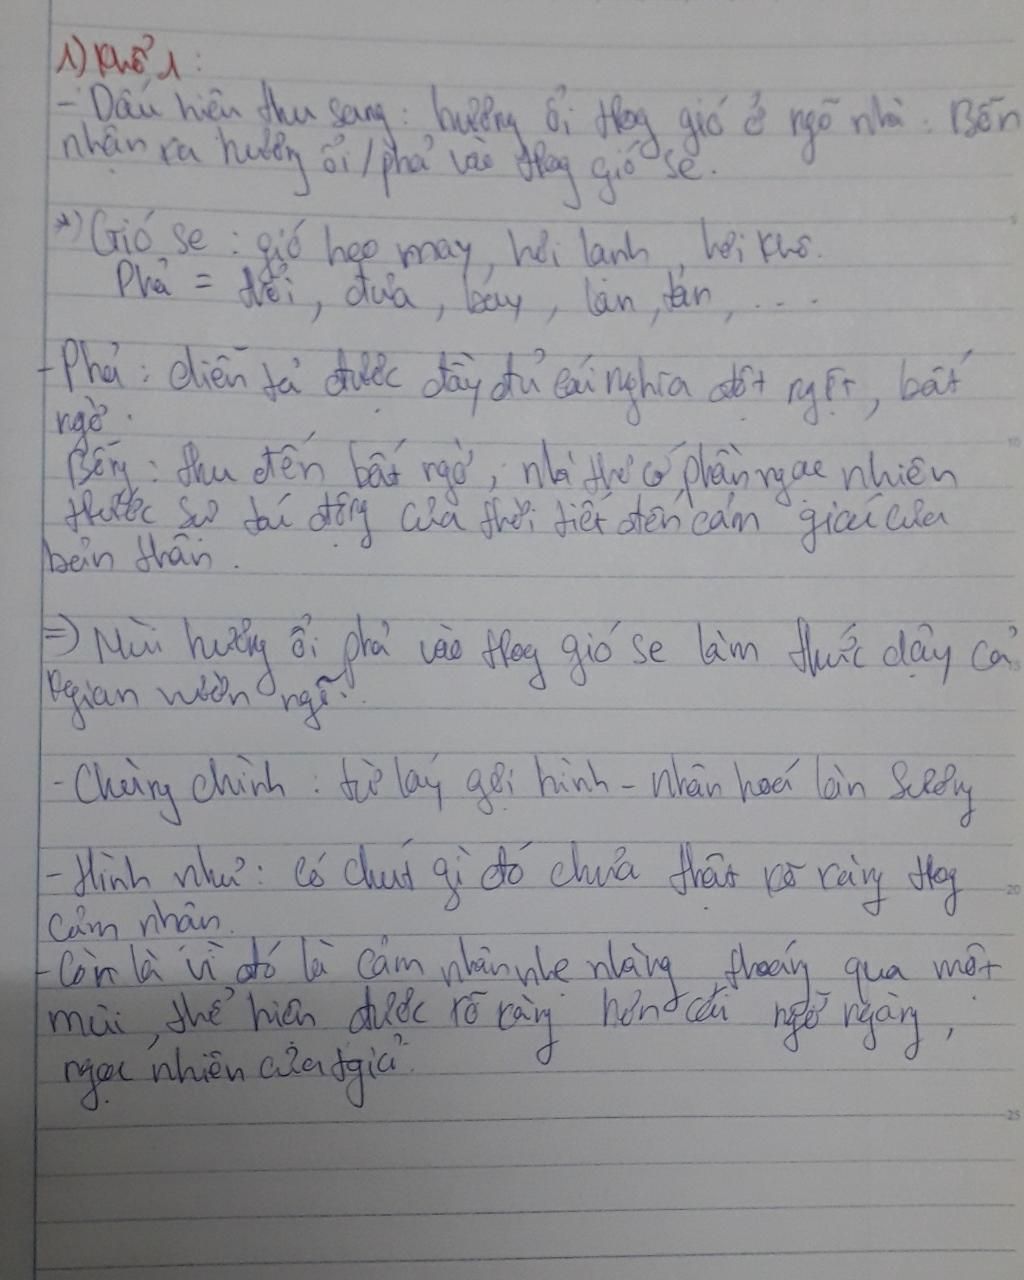 1) Khổ 1:
- Dấu hiệu thu sang: hương ổi trog gió ở ngõ nhà. Bỗng
nhận ra hương ổi/phả vào trog gió se.
*) Gió se: gió heo may, hơi lạnh, hơi khô.
Phả = thổi, đưa, bay, lan, tan, ....
- Phả: diễn tả được đầy đủ cái nghĩa đột ngột, bất
ngờ.
Bỗng: thu đến bất ngờ, nhà thơ có phần ngạc nhiên
trước sự tác động của thời tiết đến cảm giác của
bản thân.
=) Mùi hương ổi phả vào trog gió se làm thức dậy cả
kgian vườn ngõ.
- Chùng chình: từ láy gợi hình - nhân hoá làn sương
- Hình như: có chút gì đó chưa thật rõ ràng trog
cảm nhận.
- Còn là vì đó là cảm nhận nhẹ nhàng thoáng qua một
mùi, thể hiện được rõ ràng hơn cái ngỡ ngàng,
ngạc nhiên của tgiả.
20
25